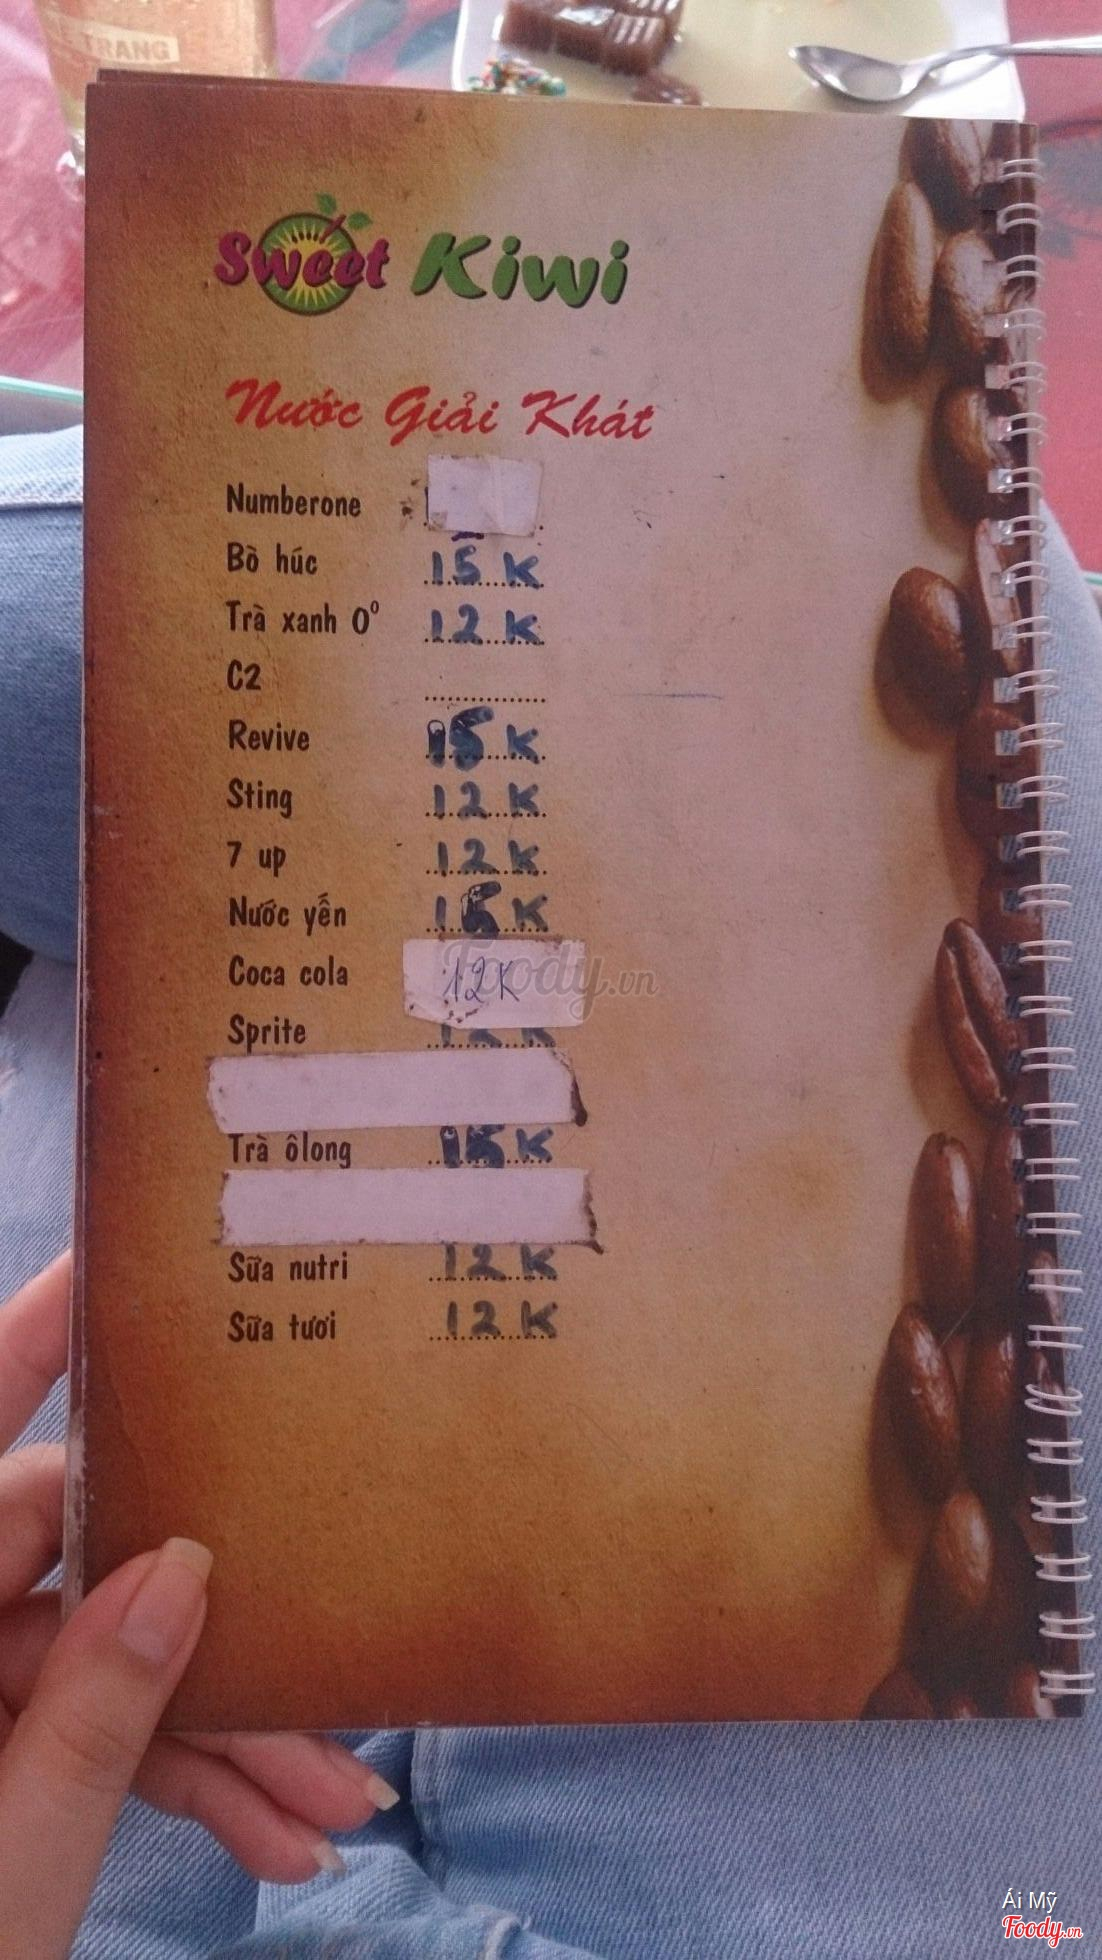 E TRANG
Sweet Kiwi
Nước Giải Khát
Numberone
Bò húc 15 K
Trà xanh 0⁰ 12 K
C2
Revive 15 K
Sting 12 K
7 up 12 K
Nước yến 15 K
Coca cola 12K
Foody.vn
Sprite
Trà ôlong 15 K
Sữa nutri 12 K
Sữa tươi 12 K
Ái Mỹ
Foody.vn